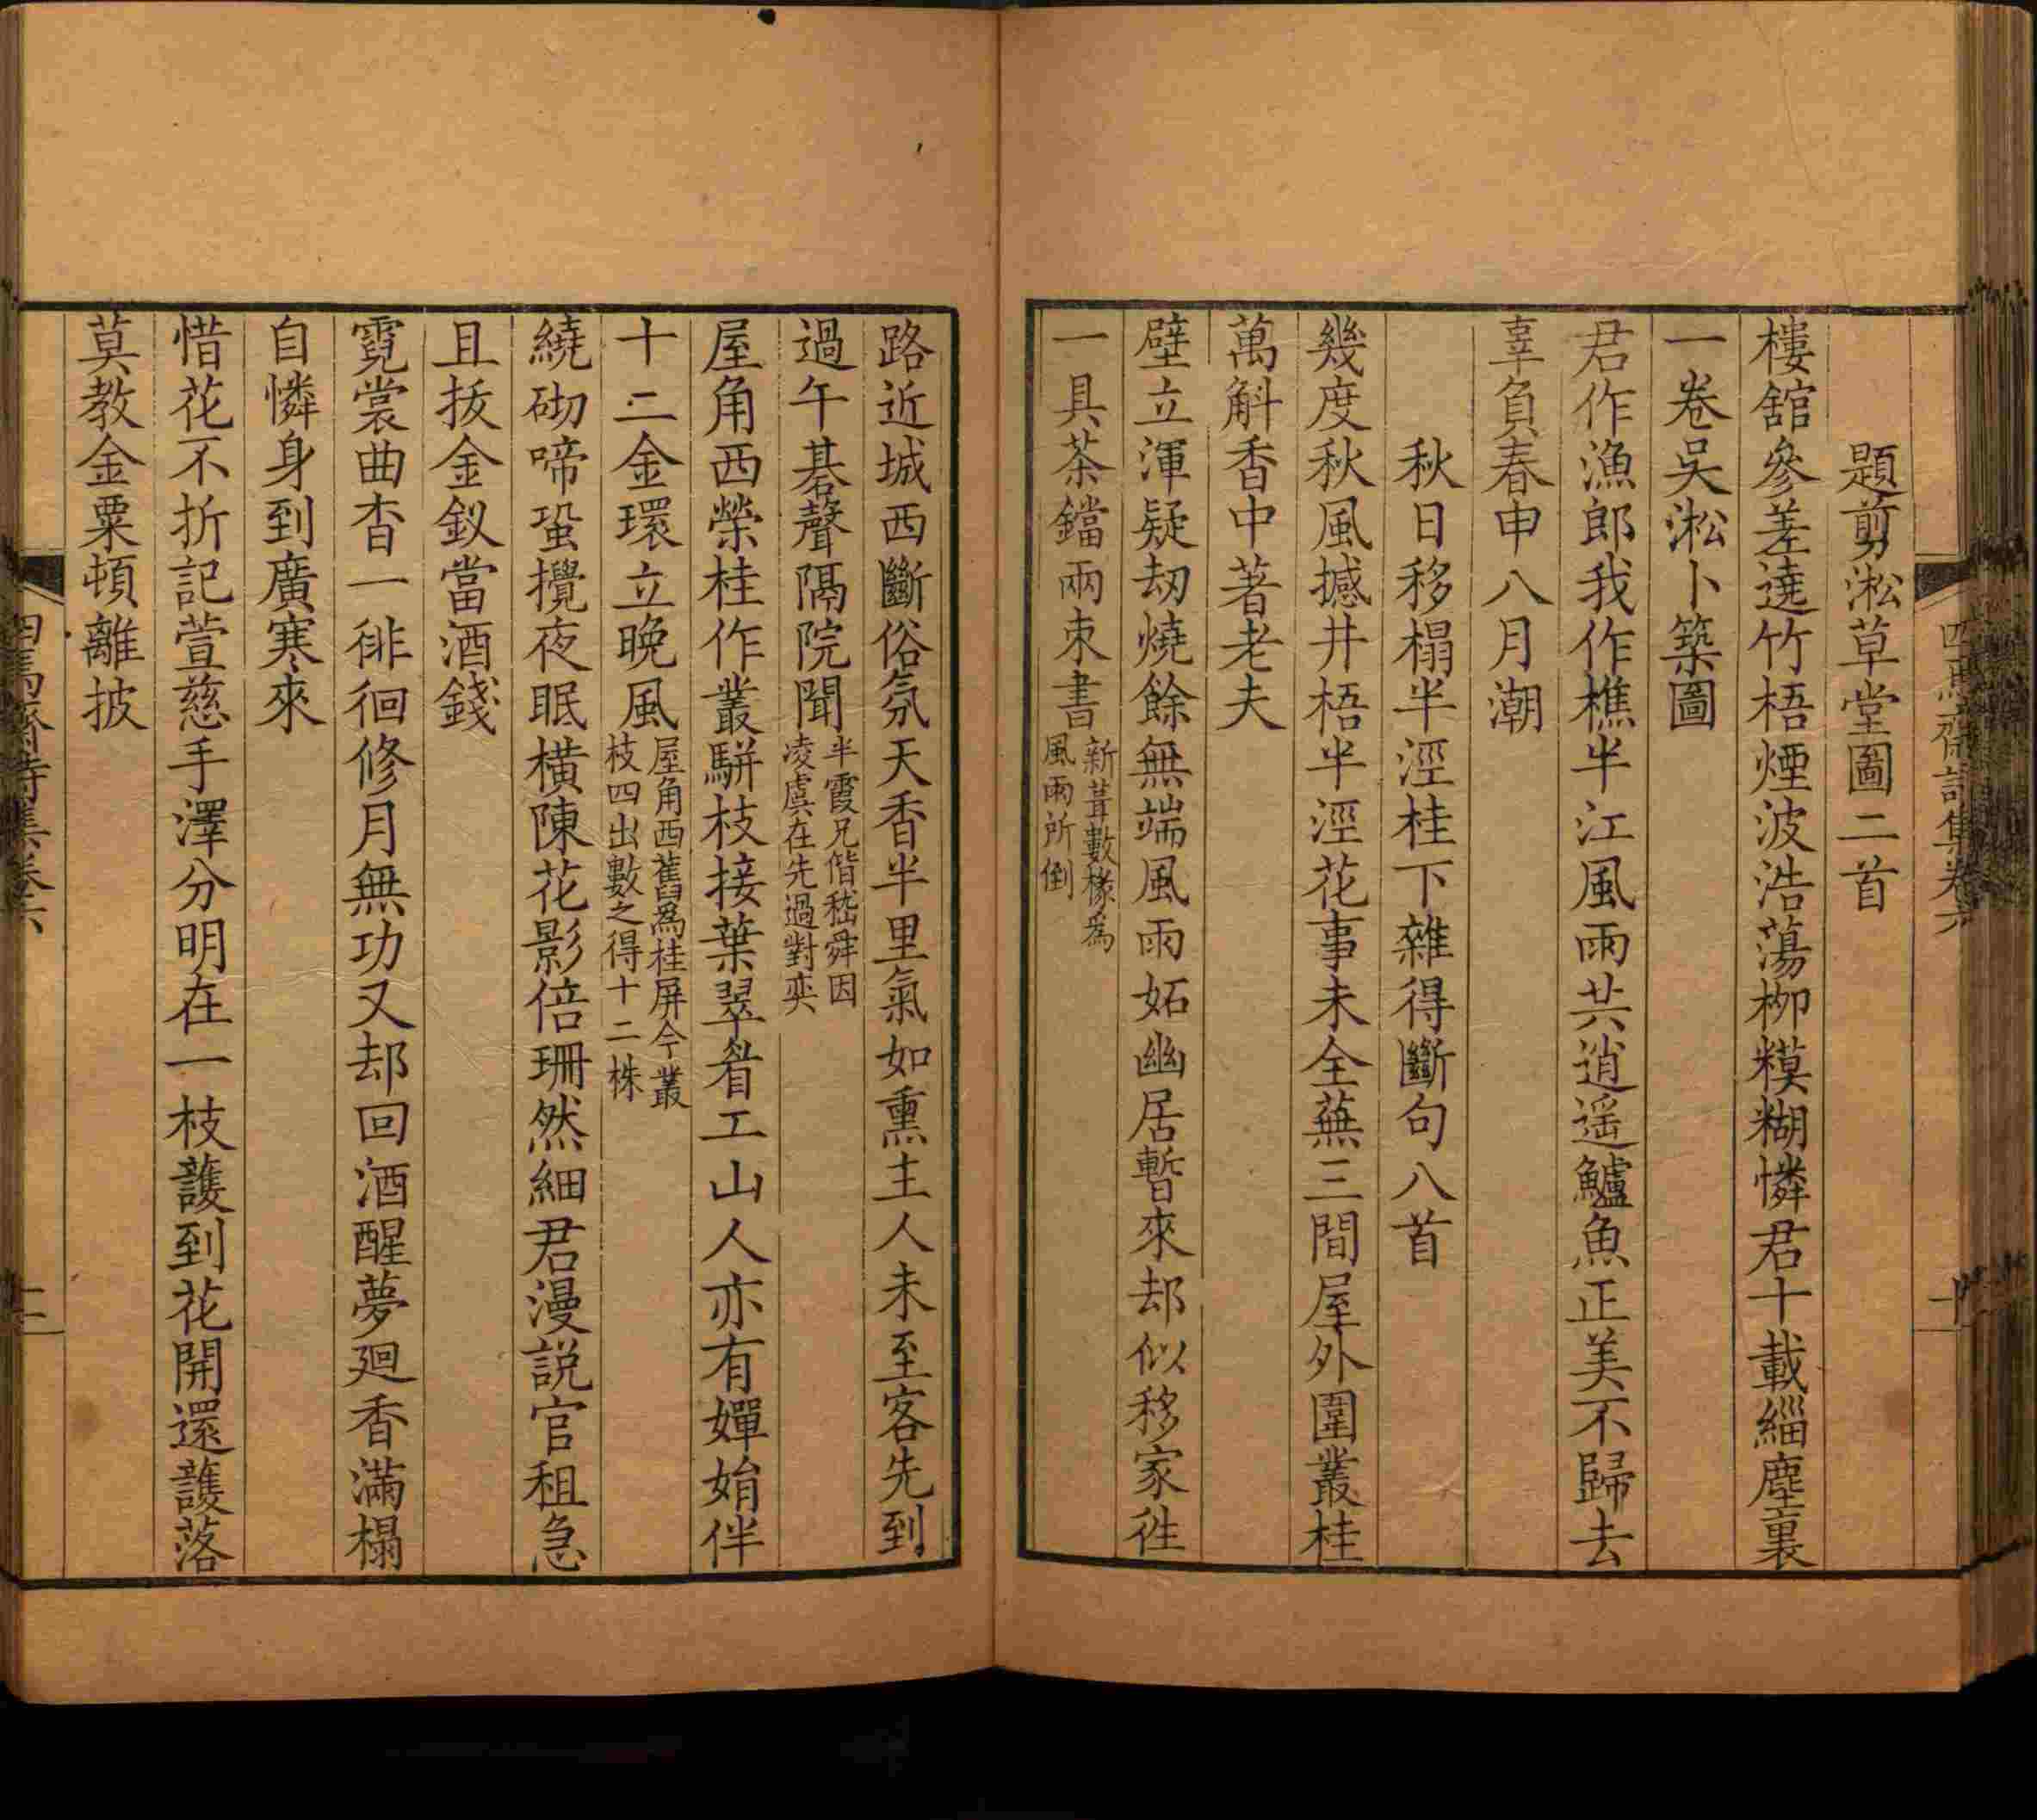 題剪淞草堂圖二首
樓舘參差遶竹梧煙波浩蕩柳糢糊憐君十載緇塵裏
一卷吳淞卜築圖
君作漁郎我作樵半江風雨共逍遥鱸魚正美不歸去
辜負春申八月潮
秋日移榻半涇桂下雜得斷句八首
幾度秋風撼井梧半涇花事未全蕪三間屋外圍叢桂
萬斛香中著老夫
壁立渾疑刼燒餘無端風雨妬幽居暫來却似移家徃
一具茶鐺兩束書
新葺數椽爲
風雨所倒
路近城西斷俗氛天香半里氣如熏主人未至客先到
過午棊聲隔院聞
半霞兄偕嵇舜因
凌虞在先過對奕
屋角西榮桂作叢駢枝接葉翠㫺工山人亦有嬋娟伴
十二金環立晚風
屋角西舊爲桂屏今叢
枝四出數之得十二株
繞砌啼蛩攪夜眠橫陳花影倍珊然細君漫説官租急
且拔金釵當酒錢
霓裳曲杳一徘徊修月無功又却回酒醒夢廻香滿榻
自憐身到廣寒來
惜花不折記萱慈手澤分明在一枝護到花開還護落
莫教金粟頓離披